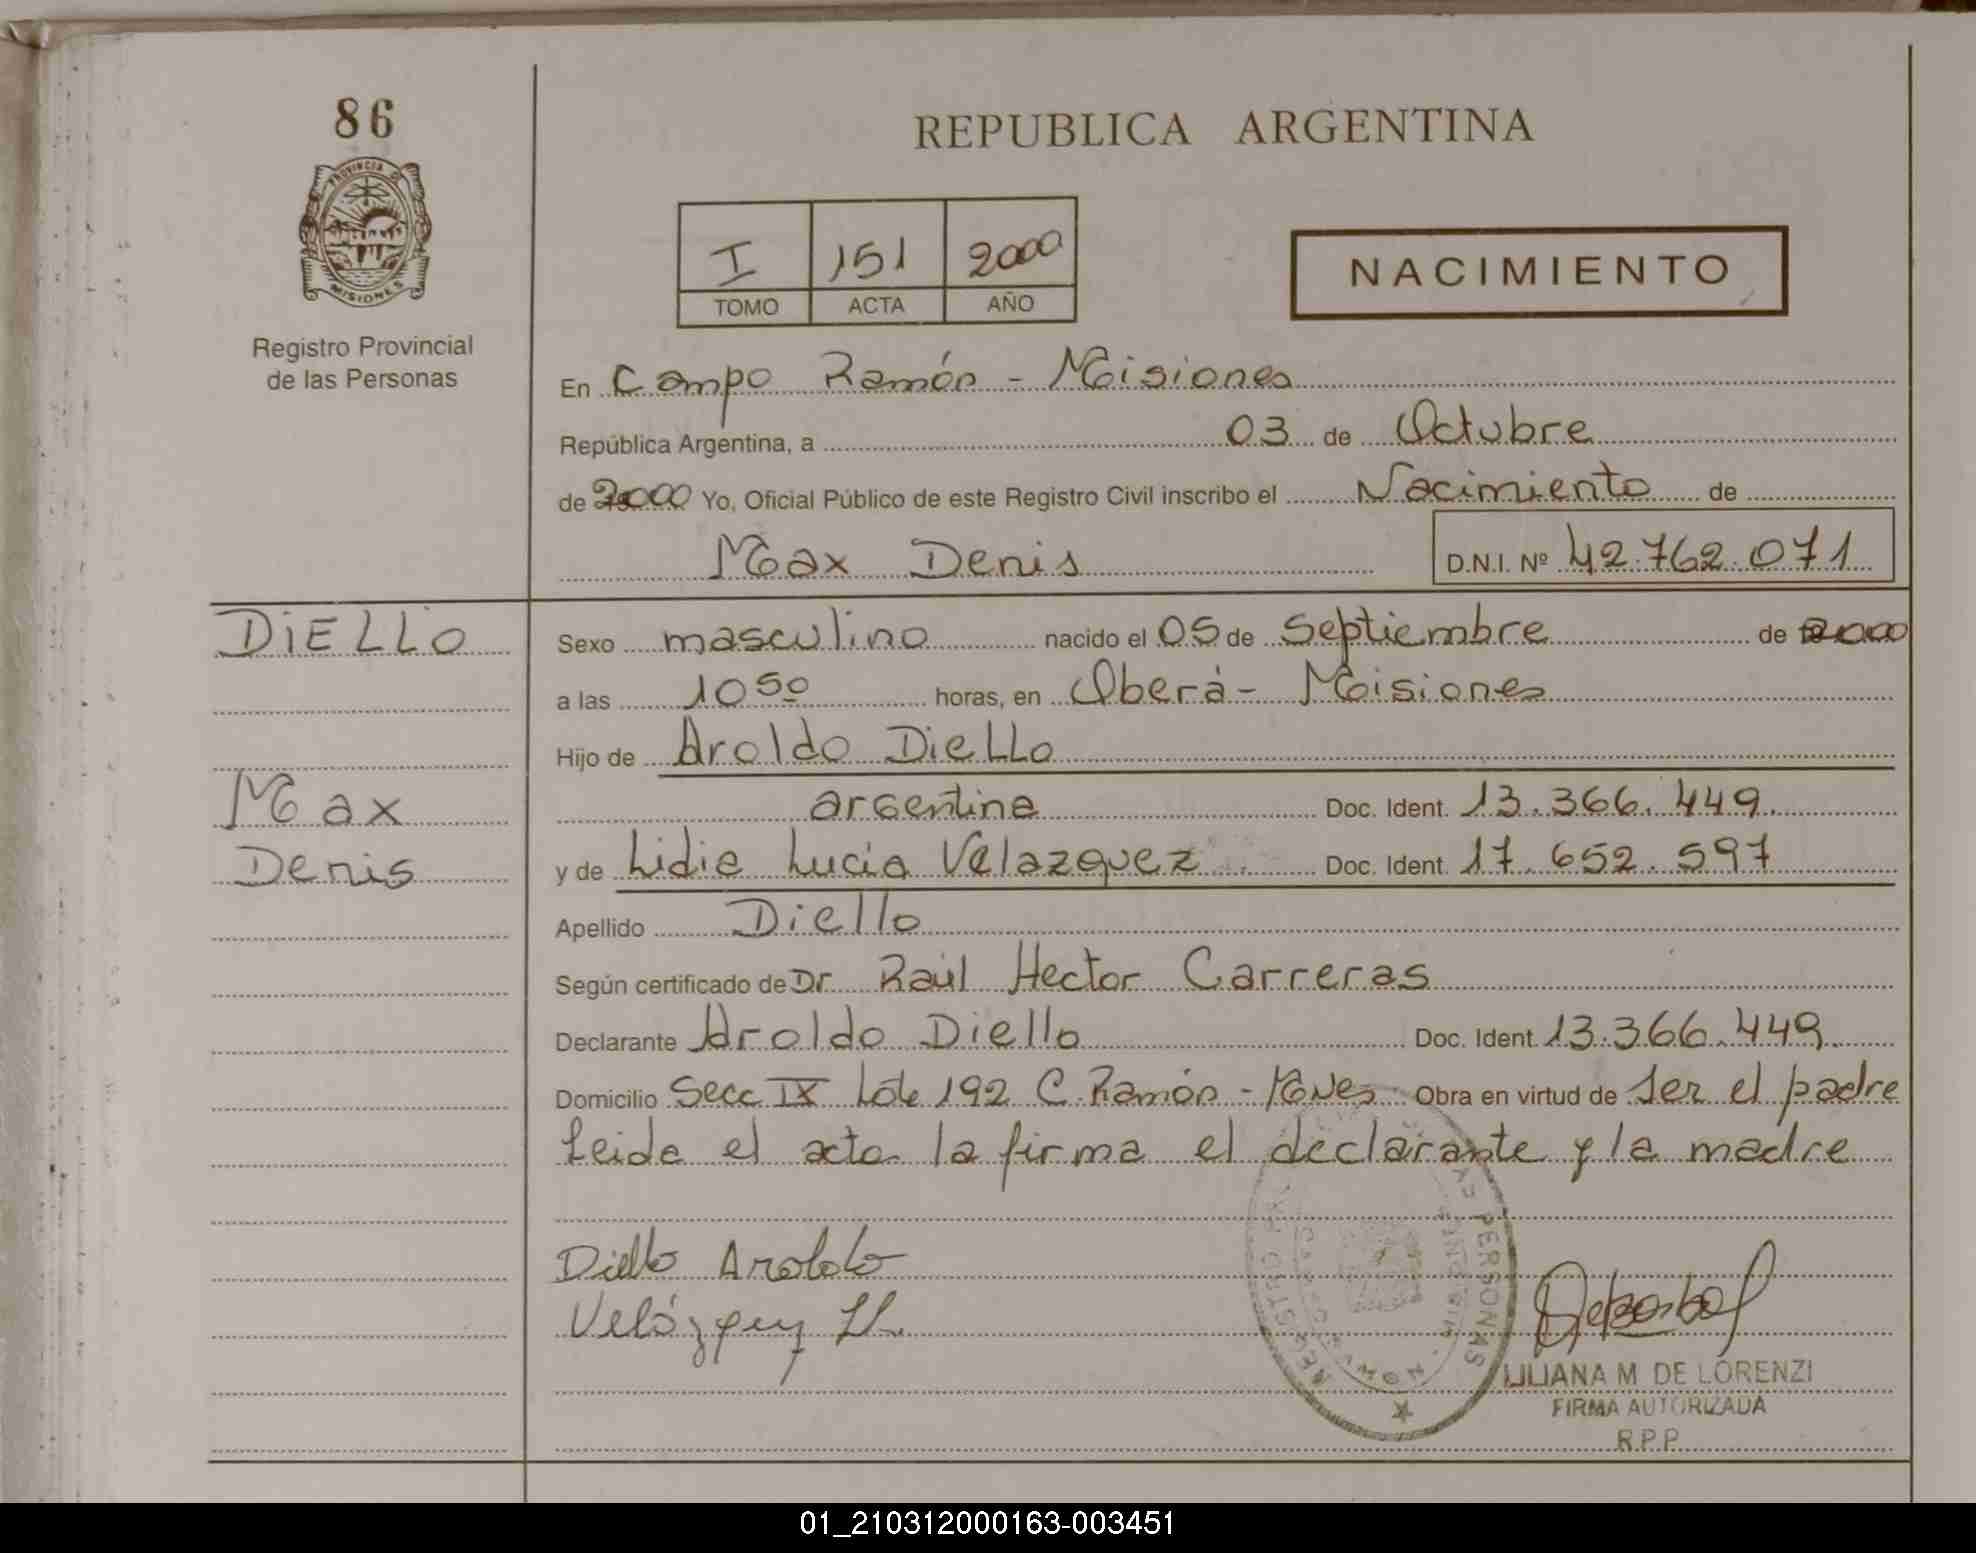 86
REPUBLICA ARGENTINA
PROVINCIA D
MISIONES
Registro Provincial
de las Personas
I 151 2000
TOMO ACTA AÑO
NACIMIENTO
En Campo Ramón - Misiones
República Argentina, a 03 de Octubre
de 2000 Yo, Oficial Público de este Registro Civil inscribo el Nacimiento de
Max Denis D.N.I. Nº 42.762.071
DiELLO
Max
Denis
Sexo masculino nacido el 05 de Septiembre de 2000
a las 10 50 horas, en Oberá - Misiones
Hijo de Aroldo DieLLo
argentina Doc. Ident. 13.366.449.
y de Lidia Lucia Velazquez Doc. Ident. 17.652.597
Apellido Diello
Según certificado de Dr Raúl Hector Carreras
Declarante Aroldo Diello Doc. Ident. 13.366.449.
Domicilio Secc IX Lote 192 C. Ramón - Mnes Obra en virtud de Ser el padre
Leida el acta la firma el declarante y la madre
Diello Aroldo
Velázquez
PERSONAS
LILIANA M. DE LORENZI
FIRMA AUTORIZADA
R.P.P.
01_210312000163-003451